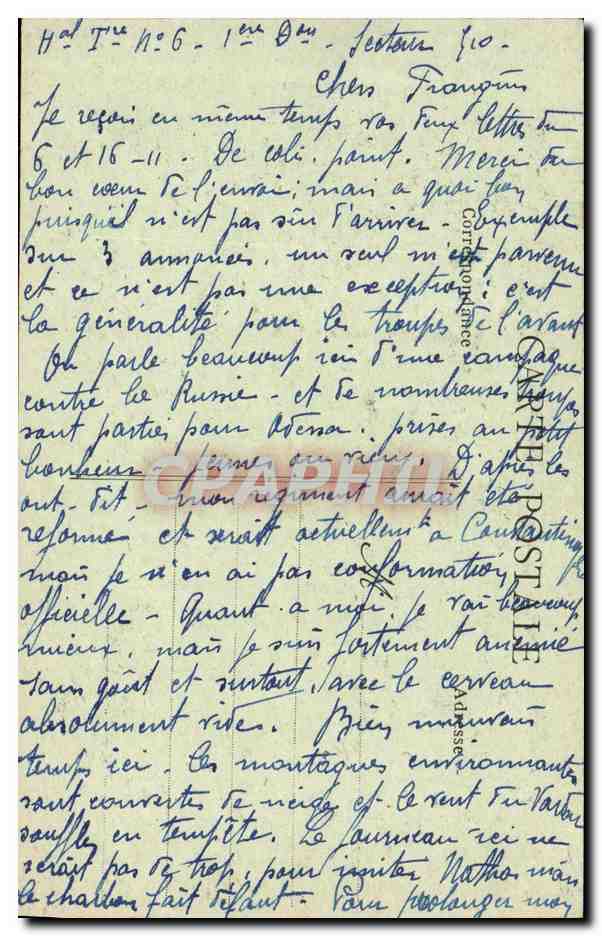 Hal Tre No 6 - 1ère Don - Secteur 510 -
Chers Françins
Je reçois en même temps vos deux lettres du
6 et 16-11. De colis, point. Merci du
bon cœur de l'envoi; mais a quoi bon
puisqu'il n'est pas sûr d'arriver - Exemple
sur 3 annoncés, un seul m'est parvenu
et ce n'est pas une exception; c'est
la généralité pour les troupes de l'avant
On parle beaucoup ici d'une campagne
contre la Russie - et de nombreuses troupes
sont parties pour Odessa. prises au petit
bonheur - jeunes ou vieux. D'après les
on-dit - mon régiment aurait été
reformé et serait actuellemt a Constantinople
mais je n'en ai pas confirmation
officielle - Quant a moi, je vais beaucoup
mieux, mais je suis fortement anémié
sans goût et surtout, avec le cerveau
absolument vide. Bien mauvais
temps ici - les montagnes environnantes
sont couvertes de neige et le vent du Vardar
souffle en tempête. Le fourneau ici ne
serait pas de trop, pour imiter Nathos mais
le charbon fait défaut - Pour prolonger mon
CARTE POSTALE
Correspondance
Adresse
M
CPAPHIL